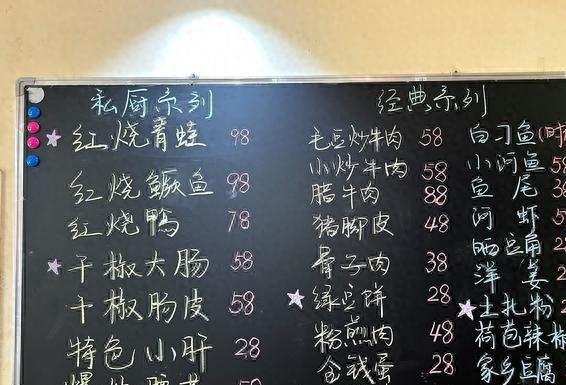 私厨系列
红烧青蛙 98
红烧鳜鱼 98
红烧鸭 78
干椒大肠 58
干椒肠皮 58
特色小肝 28
经典系列
毛豆炒牛肉 58
小炒牛肉 58
腊牛肉 88
猪脚皮 48
骨子肉 38
绿豆饼 28
粉蒸肉 48
金钱蛋 28
白刁鱼(时
小河鱼 58
鱼尾
河虾
晒豆角
洋姜
土扎粉
荷苞辣椒
家乡豆腐